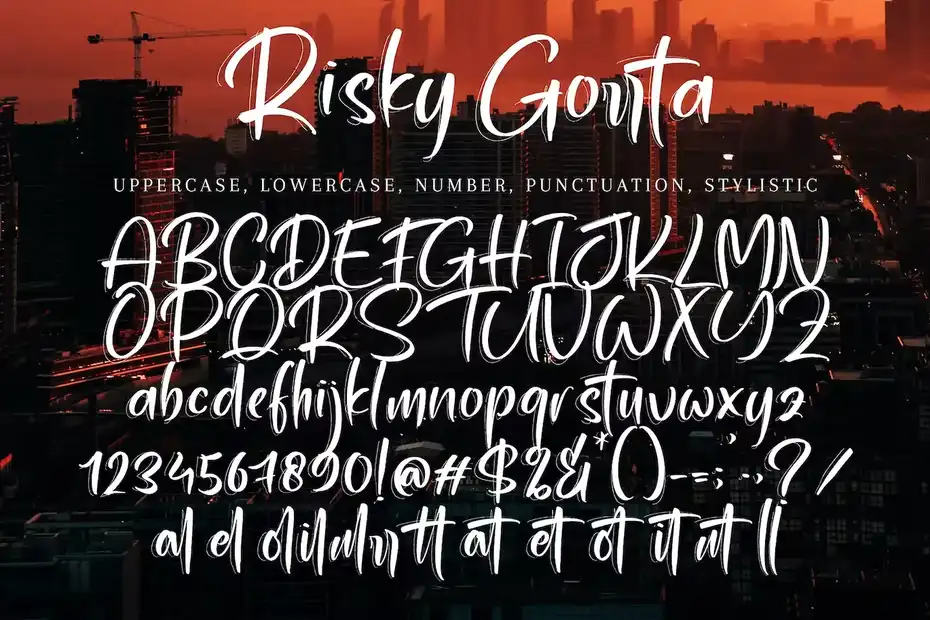 Risky Gorrta
UPPERCASE, LOWERCASE, NUMBER, PUNCTUATION, STYLISTIC
ABCDEFGHIJKLMN
OPQRSTUVWXYZ
abcdefhijklmnopqrstuvwxyz
1234567890!@#$%&*()-=;:,?/
al el ol il ul rr tt at et ot it ut ll